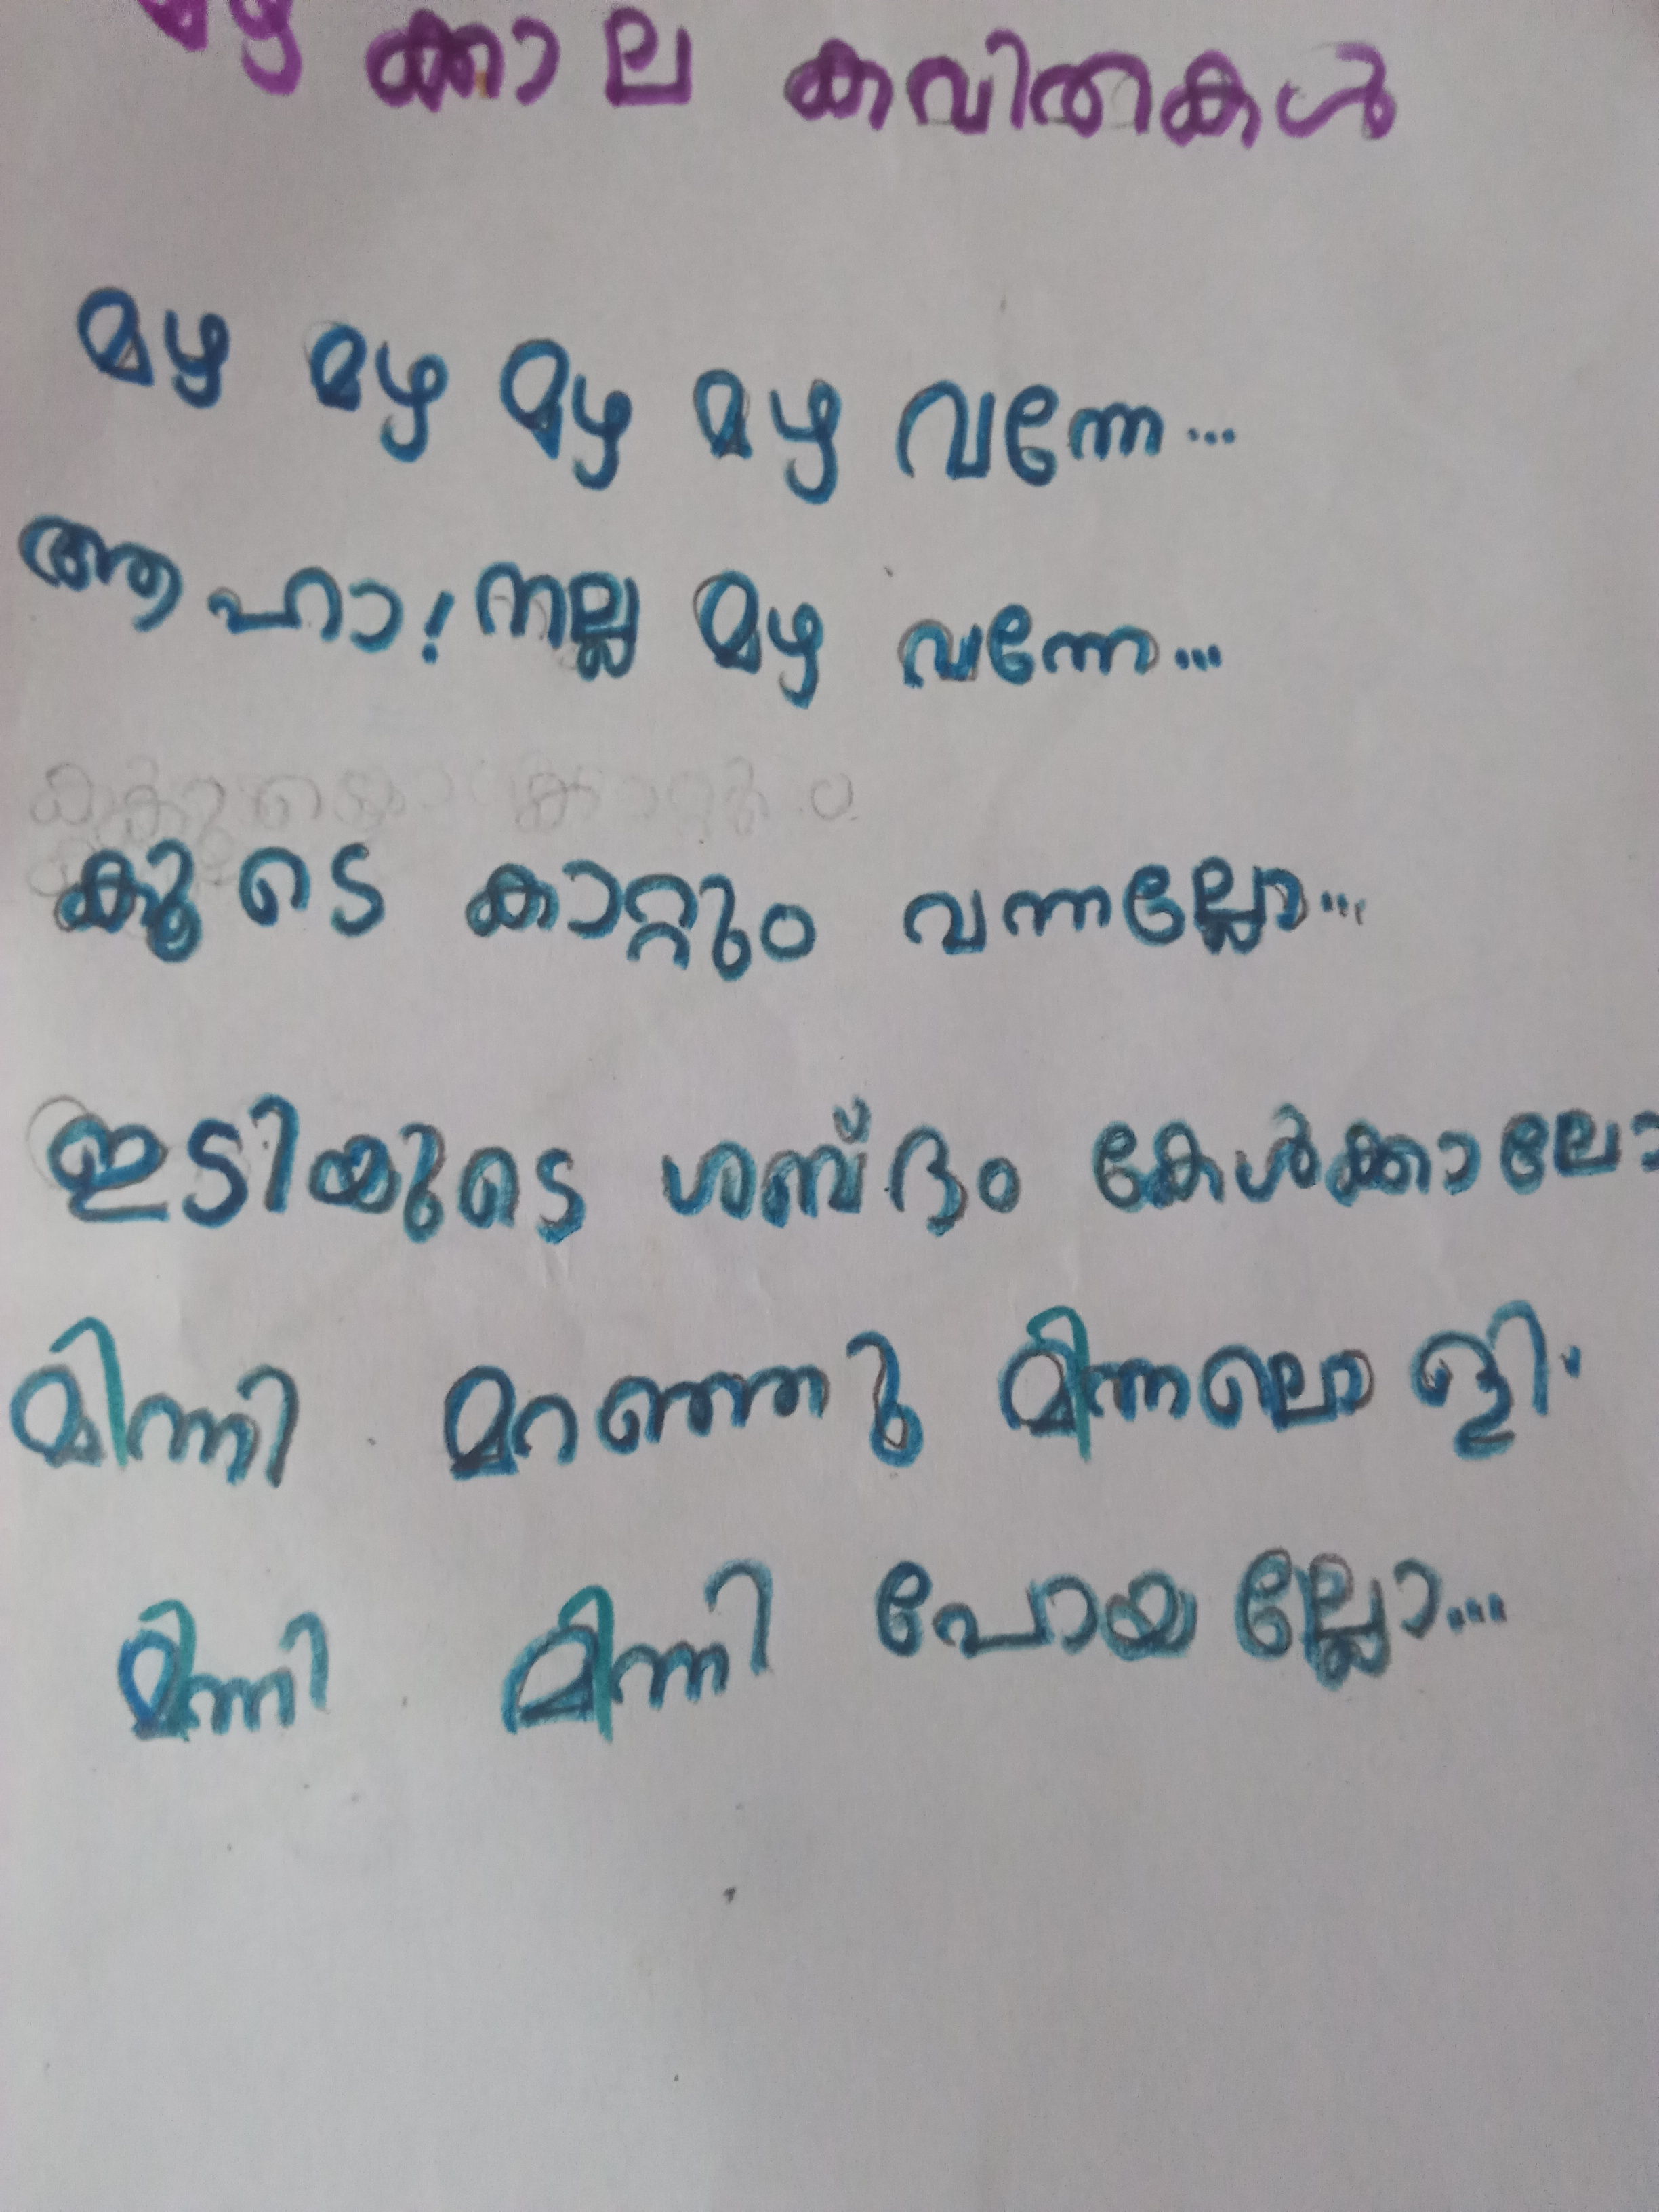 മഴക്കാല കവിതകൾ
മഴ മഴ മഴ മഴ വന്നേ...
ആഹാ! നല്ല മഴ വന്നേ...
കൂടെ കാറ്റും വന്നല്ലോ...
ഇടിയുടെ ശബ്ദം കേൾക്കാലോ
മിന്നി മറഞ്ഞു മിന്നലൊളി.
മിന്നി മിന്നി പോയല്ലോ...